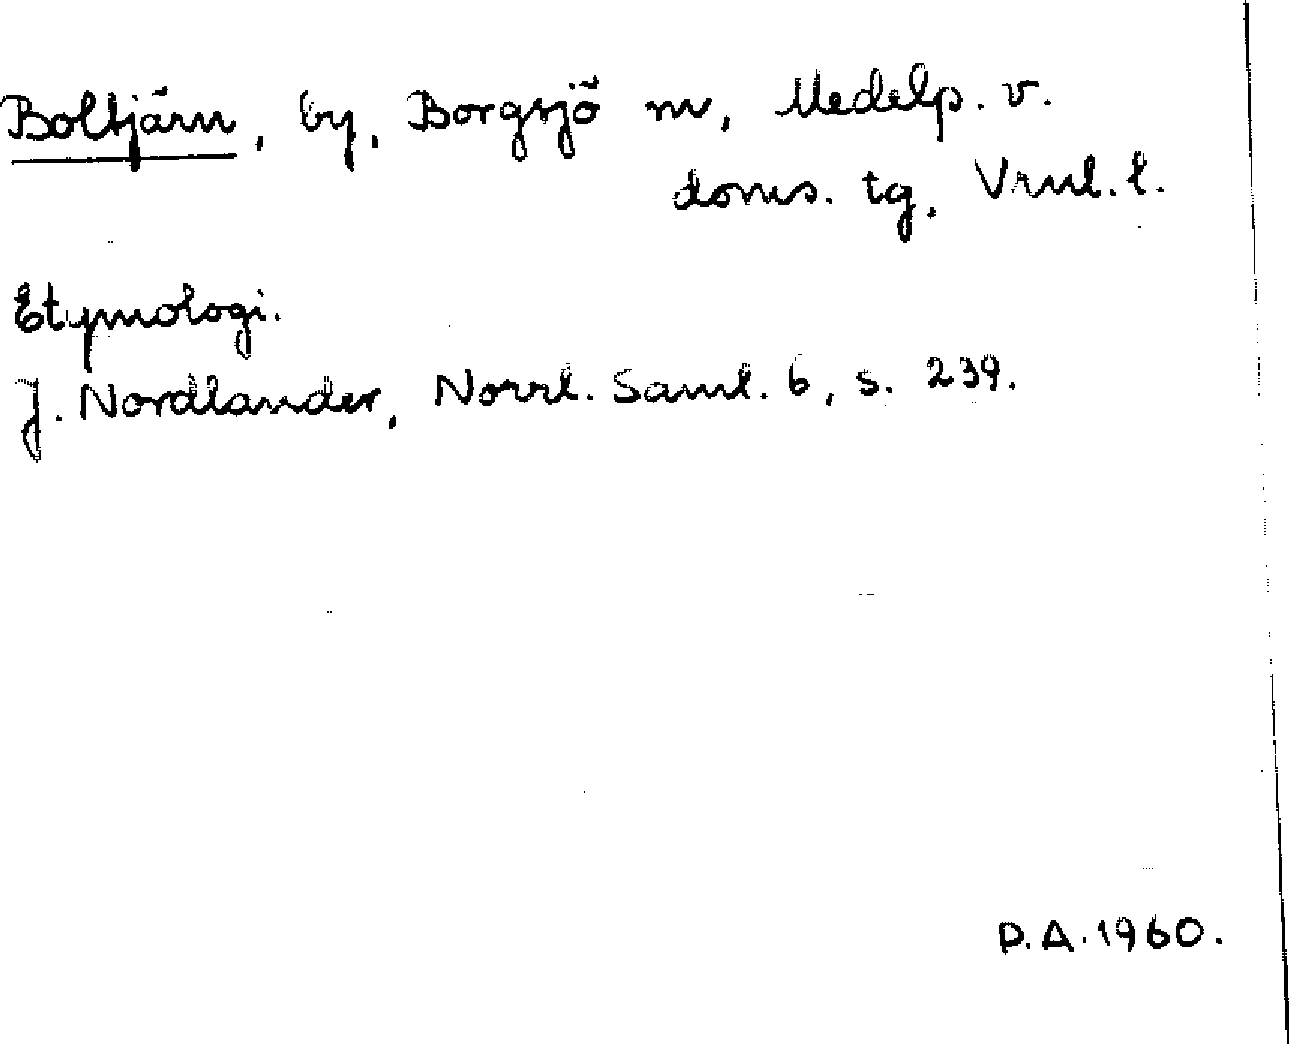 Boltjärn, by, Borgsjö sn, Medelp. v.
doms. tg, Vnl. l.
Etymologi.
J. Nordlander, Norrl. Saml. 6, s. 239.
D.A. 1960.